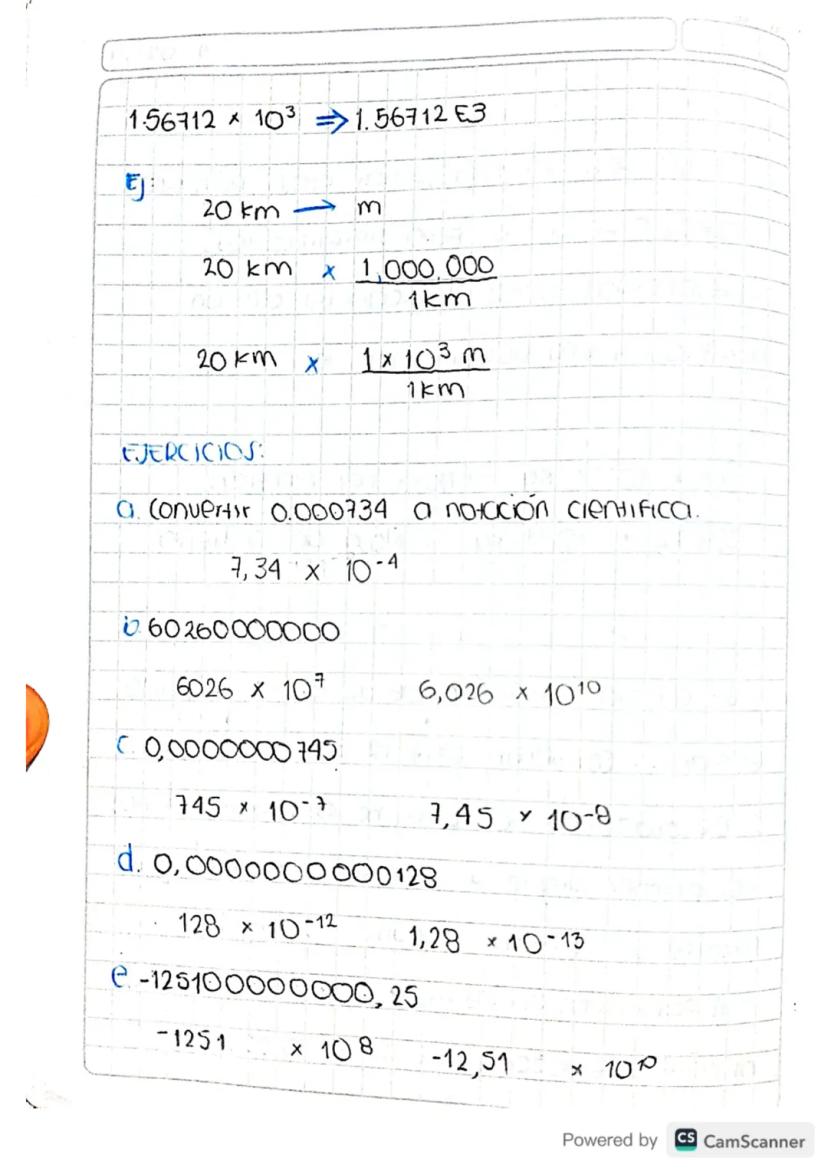 1.56712 × 10³ ⇒ 1.56712 E3
Ej:
20 km → m
20 km × 1,000,000
1km
20 km × 1 × 10³ m
1km
EJERCICIOS:
a. Convertir 0.000734 a notación cientifica.
7,34 × 10⁻⁴
b. 60260000000
6026 × 10⁷ 6,026 × 10¹⁰
c. 0,0000000745
745 × 10⁻⁷ 7,45 × 10⁻⁸
d. 0,0000000000128
128 × 10⁻¹² 1,28 × 10⁻¹³
e. -125100000000,25
-1251 × 10⁸ -12,51 × 10¹⁰
Powered by CS CamScanner